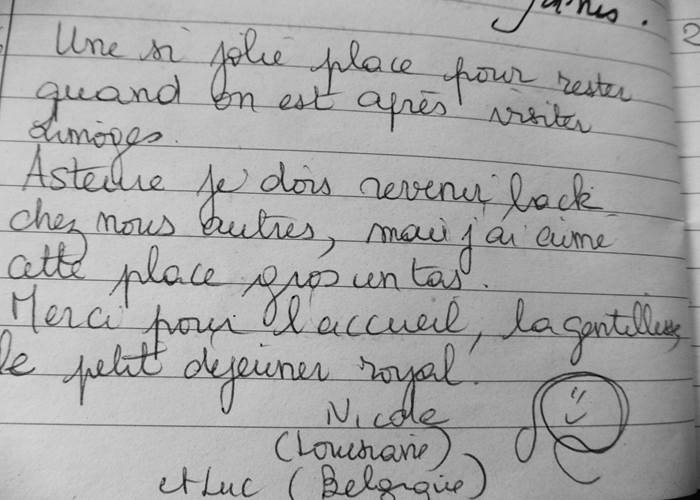 Une si jolie place pour rester
quand on est après visiter
Limoges.
Asteure je dois revenir back
chez nous autres, mais j'ai aimé
cette place gros un tas.
Merci pour l'accueil, la gentillesse
le petit dejeuner royal.
Nicole
(Louisiane)
et Luc (Belgique)
2